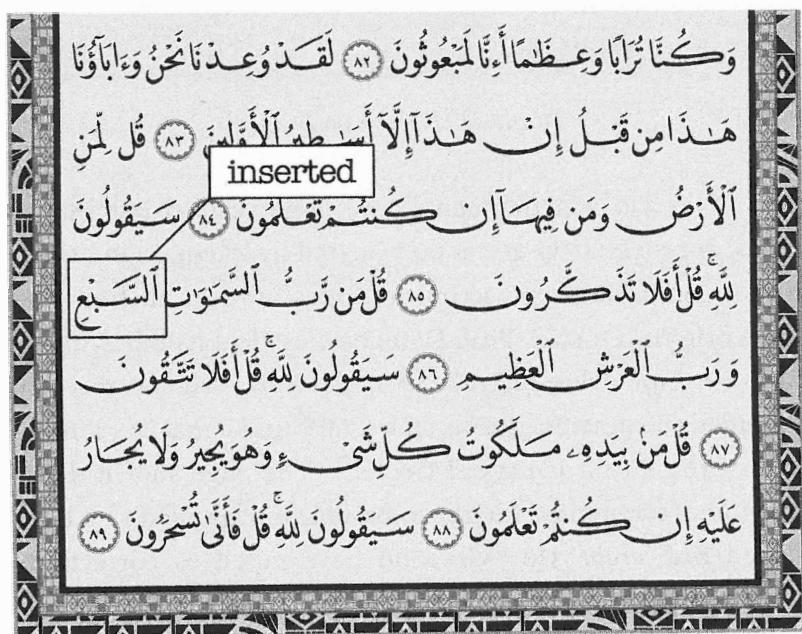 وَكُنَّا تُرَابًا وَعِظَٰمًا أَءِنَّا لَمَبْعُوثُونَ ٨٢ لَقَدْ وُعِدْنَا نَحْنُ وَءَابَآؤُنَا
هَٰذَا مِن قَبْلُ إِنْ هَٰذَآ إِلَّآ أَسَٰطِيرُ ٱلْأَوَّلِينَ ٨٣ قُل لِّمَنِ
inserted
ٱلْأَرْضُ وَمَن فِيهَآ إِن كُنتُمْ تَعْلَمُونَ ٨٤ سَيَقُولُونَ
لِلَّهِ ۚ قُلْ أَفَلَا تَذَكَّرُونَ ٨٥ قُلْ مَن رَّبُّ ٱلسَّمَٰوَٰتِ ٱلسَّبْعِ
وَرَبُّ ٱلْعَرْشِ ٱلْعَظِيمِ ٨٦ سَيَقُولُونَ لِلَّهِ ۚ قُلْ أَفَلَا تَتَّقُونَ
٨٧ قُلْ مَنۢ بِيَدِهِۦ مَلَكُوتُ كُلِّ شَىْءٍ وَهُوَ يُجِيرُ وَلَا يُجَارُ
عَلَيْهِ إِن كُنتُمْ تَعْلَمُونَ ٨٨ سَيَقُولُونَ لِلَّهِ ۚ قُلْ فَأَنَّىٰ تُسْحَرُونَ ٨٩